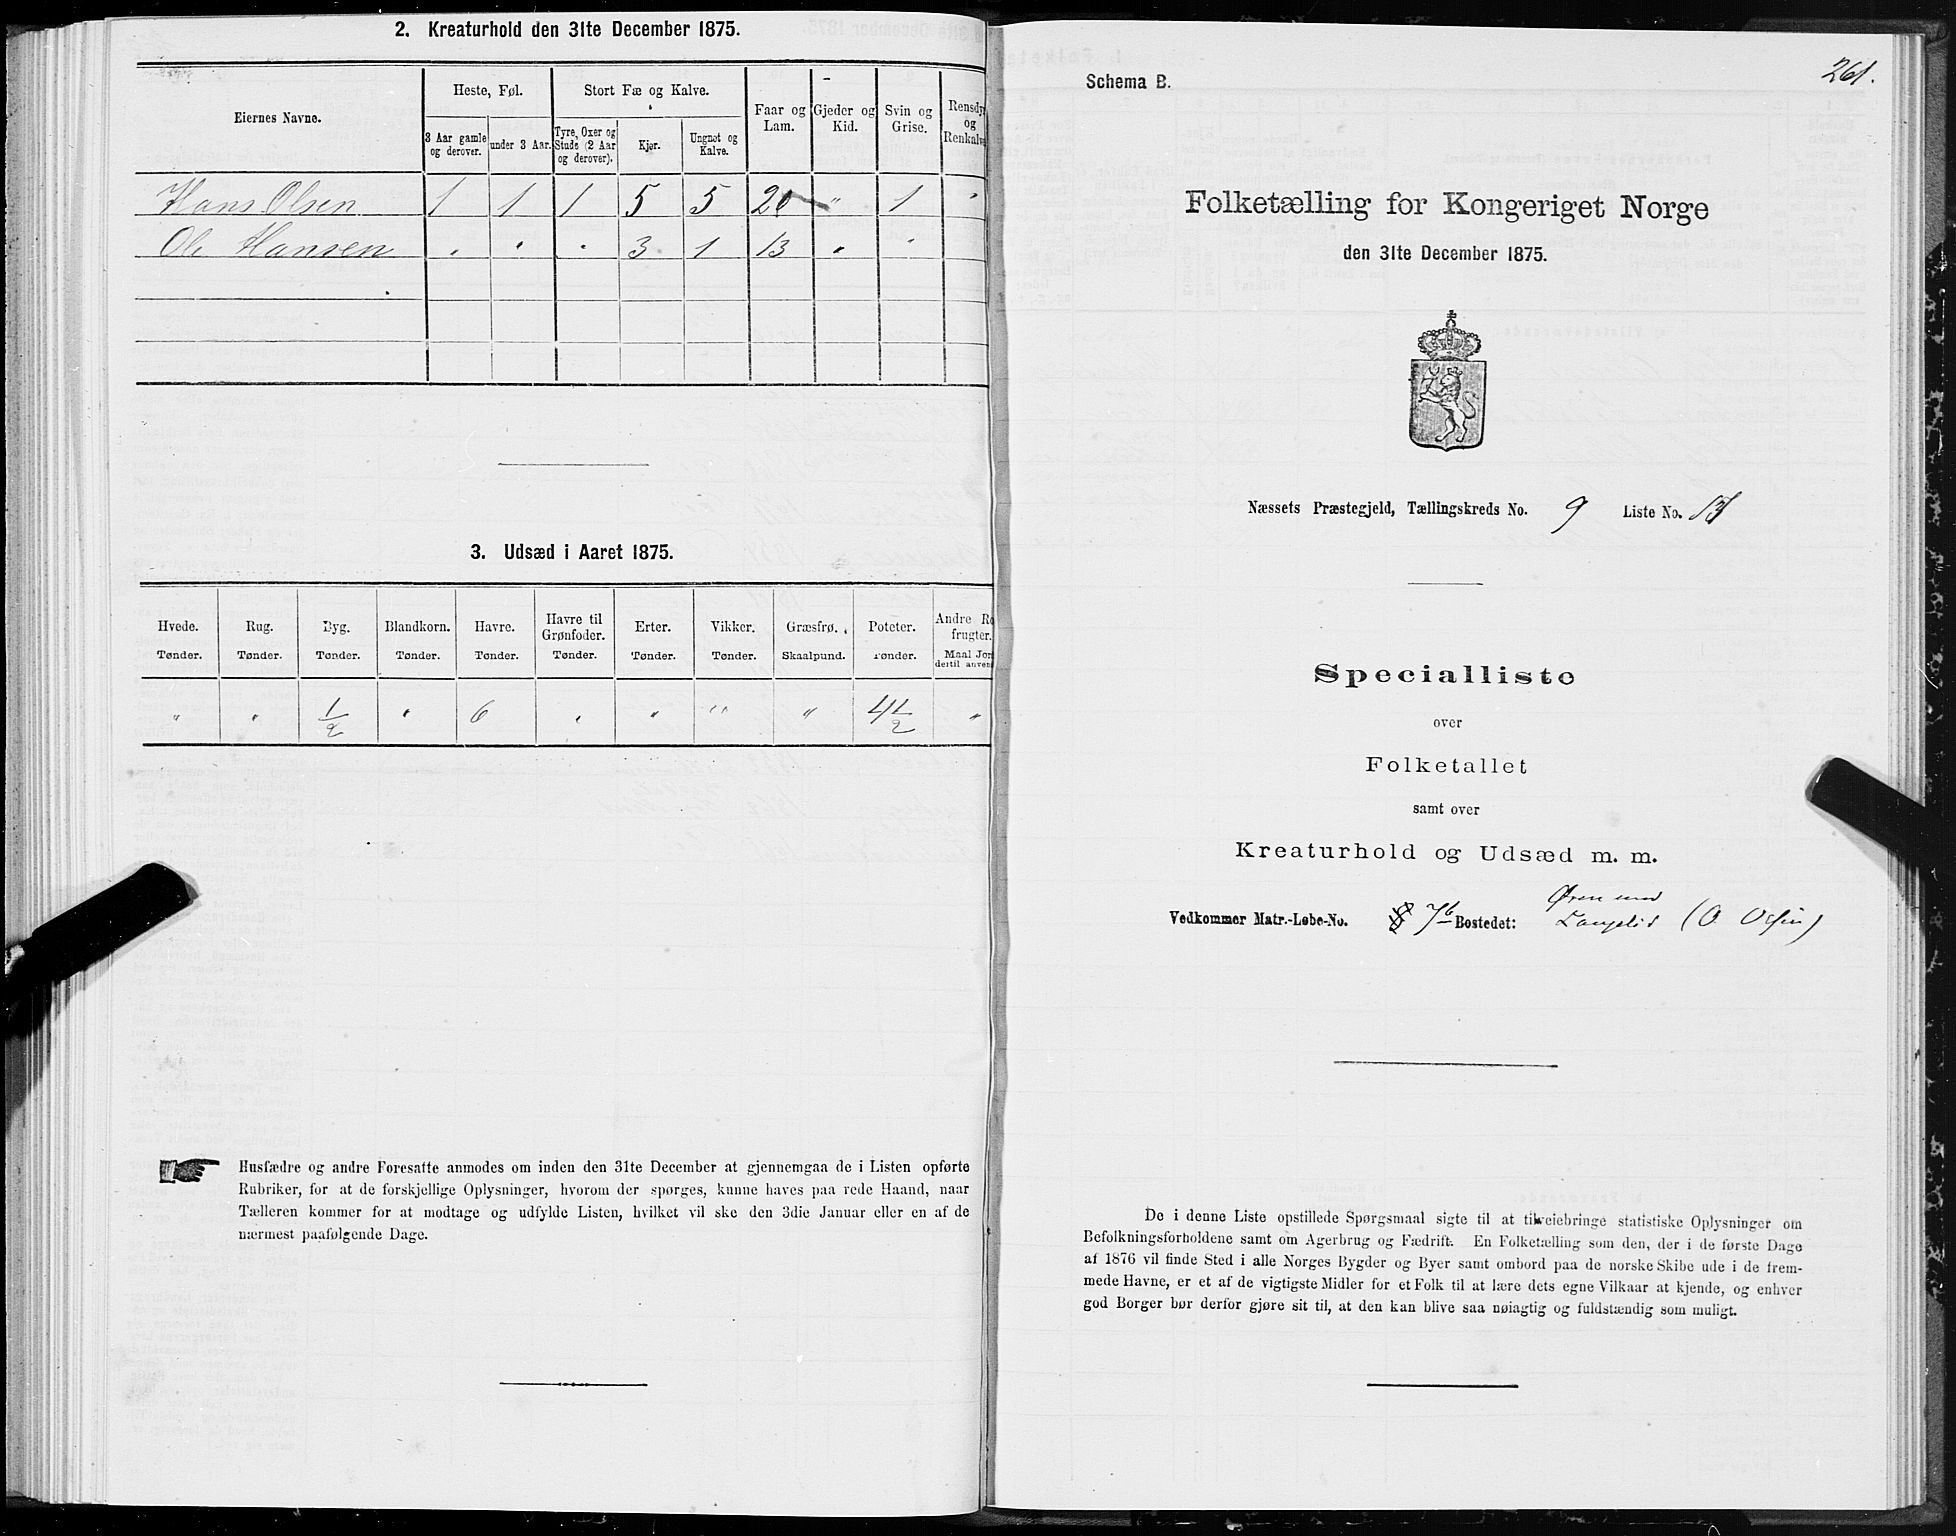 2. Kreaturhold den 31te December 1875.
Eiernes Navne.
Heste, Føl.
Stort Fæ og Kalve.
Faar og Lam.
Gjeder og Kid.
Svin og Grise.
Rensdyr og Renkalve
3 Aar gamle og derover.
under 3 Aar.
Tyre, Oxer og Stude (2 Aar og derover).
Kjør.
Ungnøt og Kalve.
Hans Olsen 1 1 1 5 5 20 " 1 "
Ole Hansen " " " 3 1 13 " "
3. Udsæd i Aaret 1875.
Hvede. Rug. Byg. Blandkorn. Havre. Havre til Grønfoder. Erter. Vikker. Græsfrø. Poteter. Andre Ro frugter.
Tønder. Tønder. Tønder. Tønder. Tønder. Tønder. Tønder. Tønder. Skaalpund. Tønder. Maal Jor dertil anvend
" " 1/2 " 6 " " " " 4 1/2 "
Husfædre og andre Foresatte anmodes om inden den 31te December at gjennemgaa de i Listen opførte
Rubriker, for at de forskjellige Oplysninger, hvorom der spørges, kunne haves paa rede Haand, naar
Tælleren kommer for at modtage og udfylde Listen, hvilket vil ske den 3die Januar eller en af de
nærmest paafølgende Dage.
261.
Schema B.
Folketælling for Kongeriget Norge
den 31te December 1875.
Næssets Præstegjeld, Tællingskreds No. 9 Liste No.
Specialliste
over
Folketallet
samt over
Kreaturhold og Udsæd m. m.
Vedkommer Matr.-Løbe-No. 7b Bostedet: Øren med
Langelid (O.
De i denne Liste opstillede Spørgsmaal sigte til at tilveiebringe statistiske Oplysninger om
Befolkningsforholdene samt om Agerbrug og Fædrift. En Folketælling som den, der i de første Dage
af 1876 vil finde Sted i alle Norges Bygder og Byer samt ombord paa de norske Skibe ude i de frem-
mede Havne, er et af de vigtigste Midler for et Folk til at lære dets egne Vilkaar at kjende, og enhver
god Borger bør derfor gjøre sit til, at den kan blive saa nøiagtig og fuldstændig som muligt.